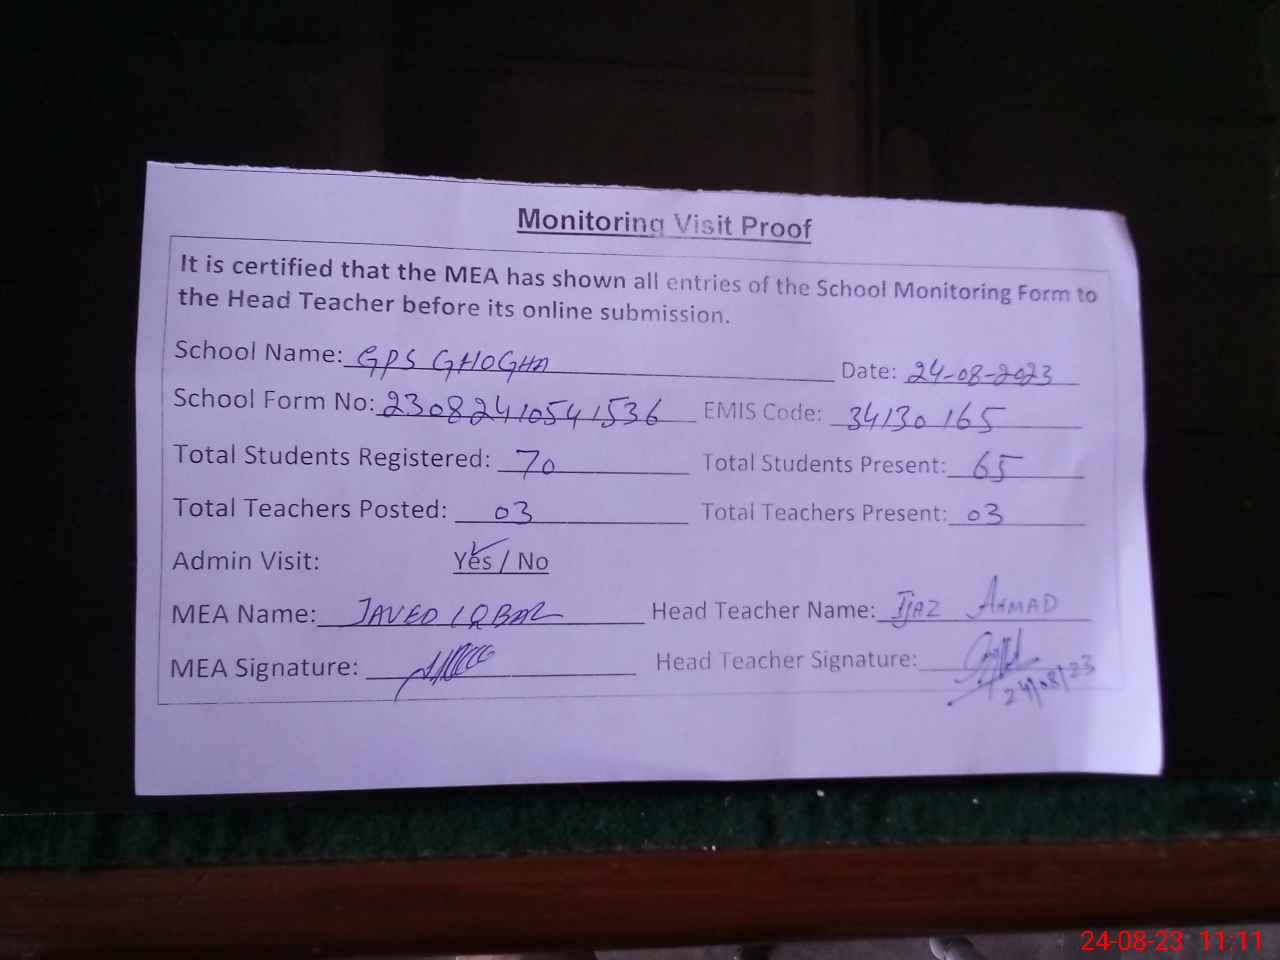 Monitoring Visit Proof
It is certified that the MEA has shown all entries of the School Monitoring Form to
the Head Teacher before its online submission.
School Name: GPS GHOGHA Date: 24-08-2023
School Form No: 23082410541536 EMIS Code: 34130165
Total Students Registered: 70 Total Students Present: 65
Total Teachers Posted: 03 Total Teachers Present: 03
Admin Visit: Yes / No
MEA Name: JAVED IQBAL Head Teacher Name: IJAZ AHMAD
MEA Signature: Head Teacher Signature:
24/08/23
24-08-23 11:11